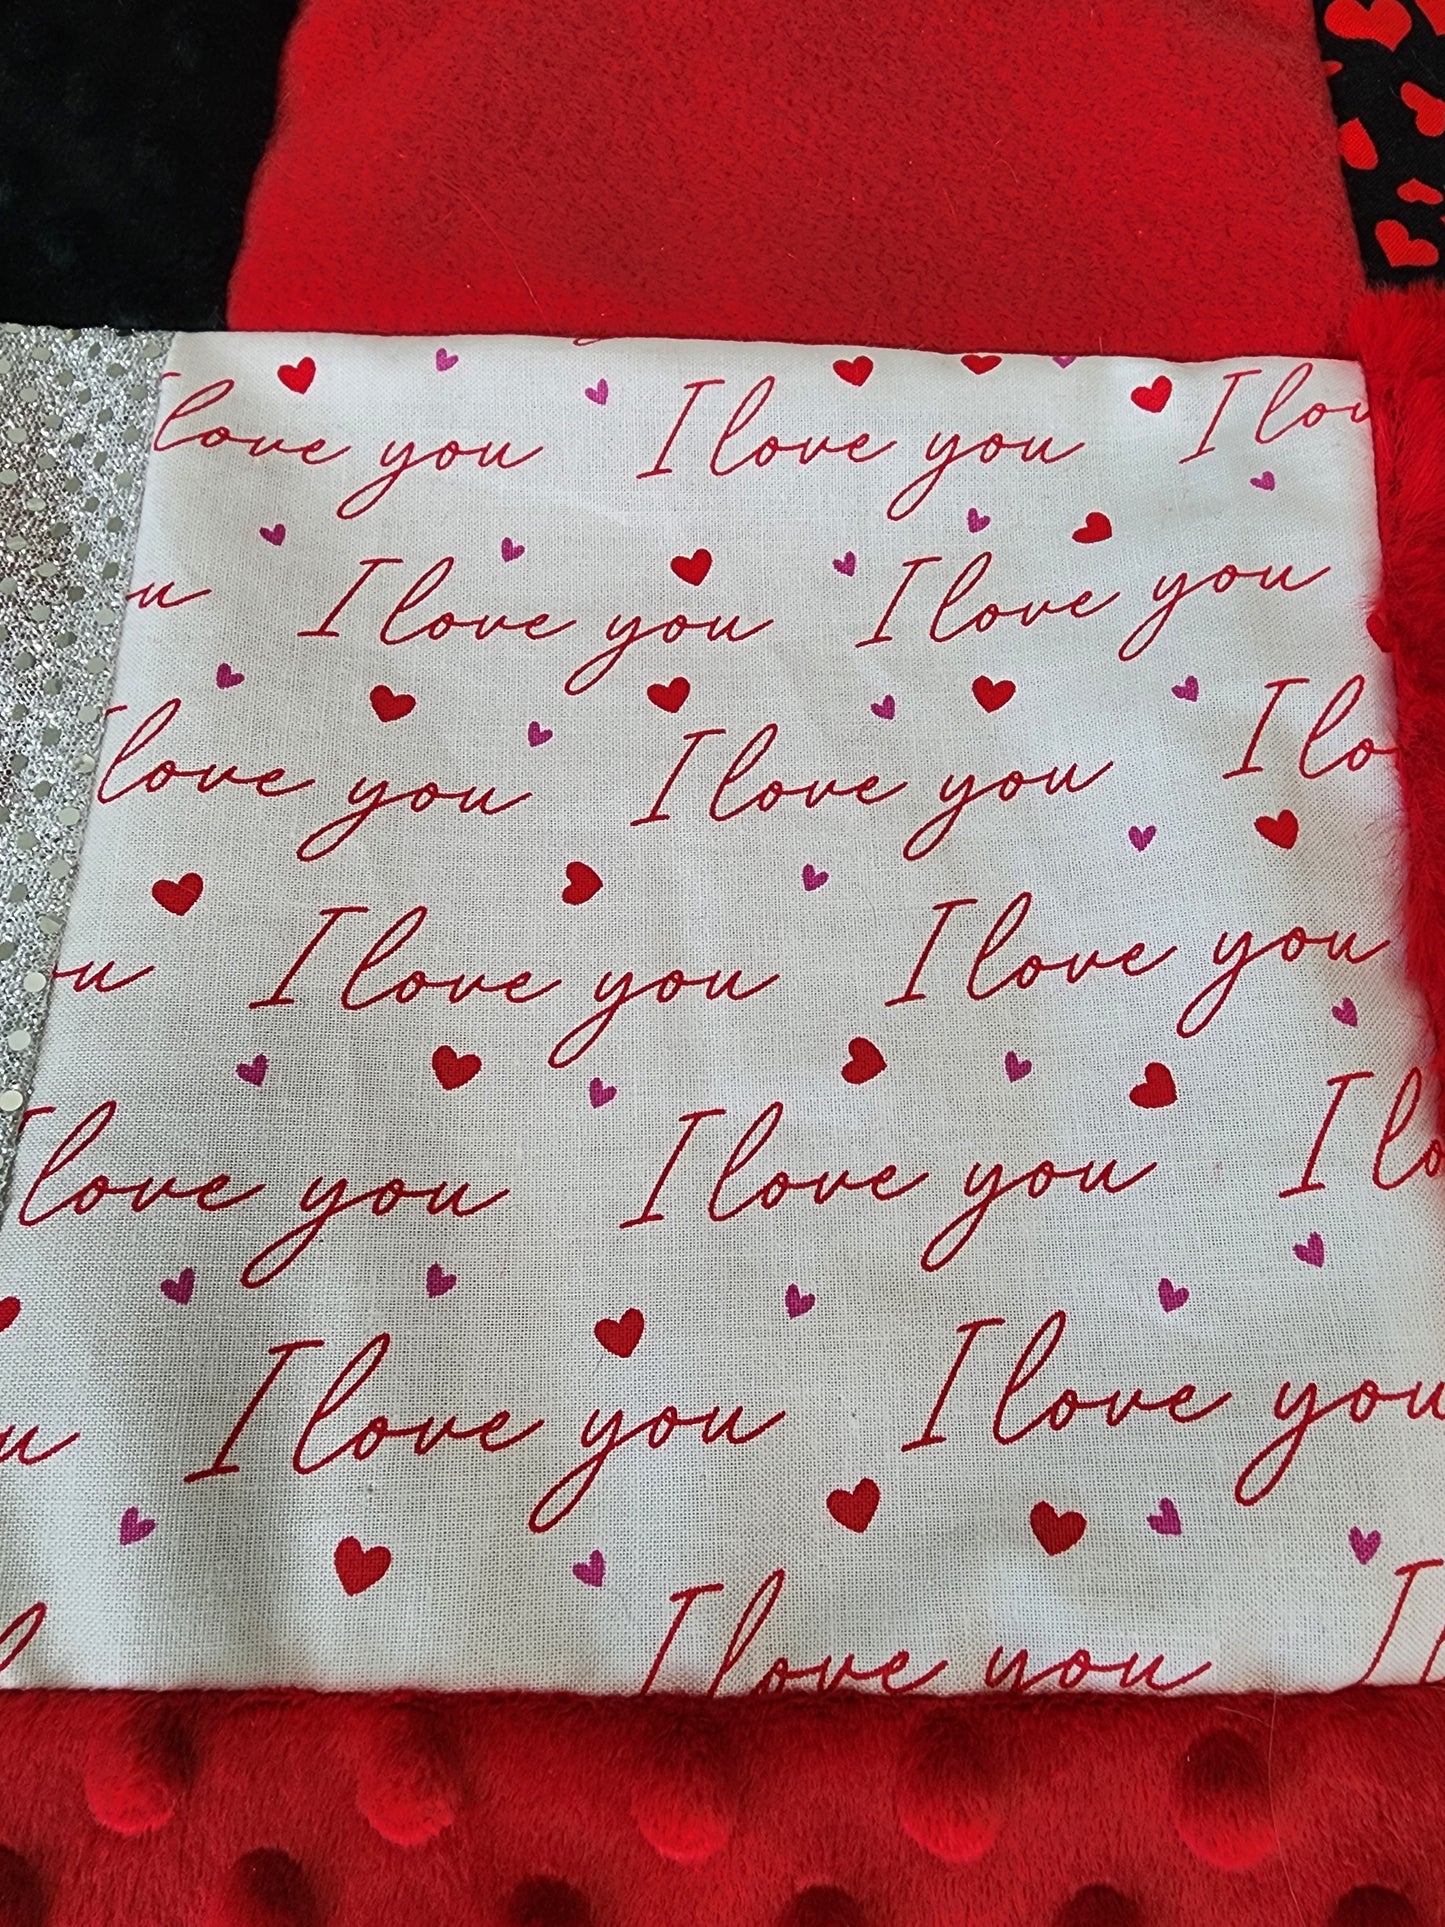 love you I love you I lov
u I love you I love you
love you I love you I lo
u I love you I love you
love you I love you I lo
u I love you I love you
I love you I l